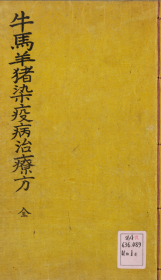 牛馬羊猪染疫病治療方
全
636.089